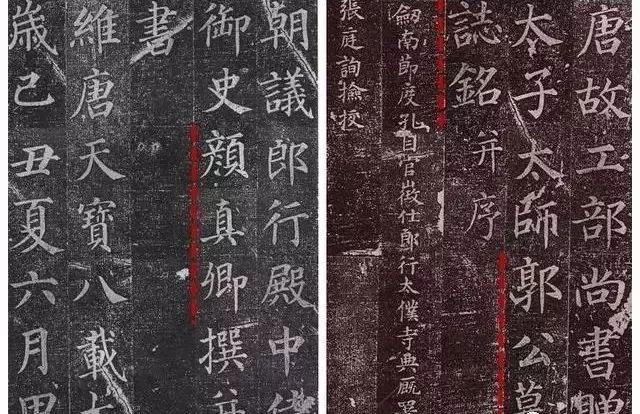 唐故工部尚書贈
太子太師郭公墓
誌銘并序
劔南節度孔目官徵仕郎行太僕寺典厩署
張庭詢撿挍
朝議郎行殿中侍
御史顏真卿撰并
書
維唐天寶八載
歳己丑夏六月甲